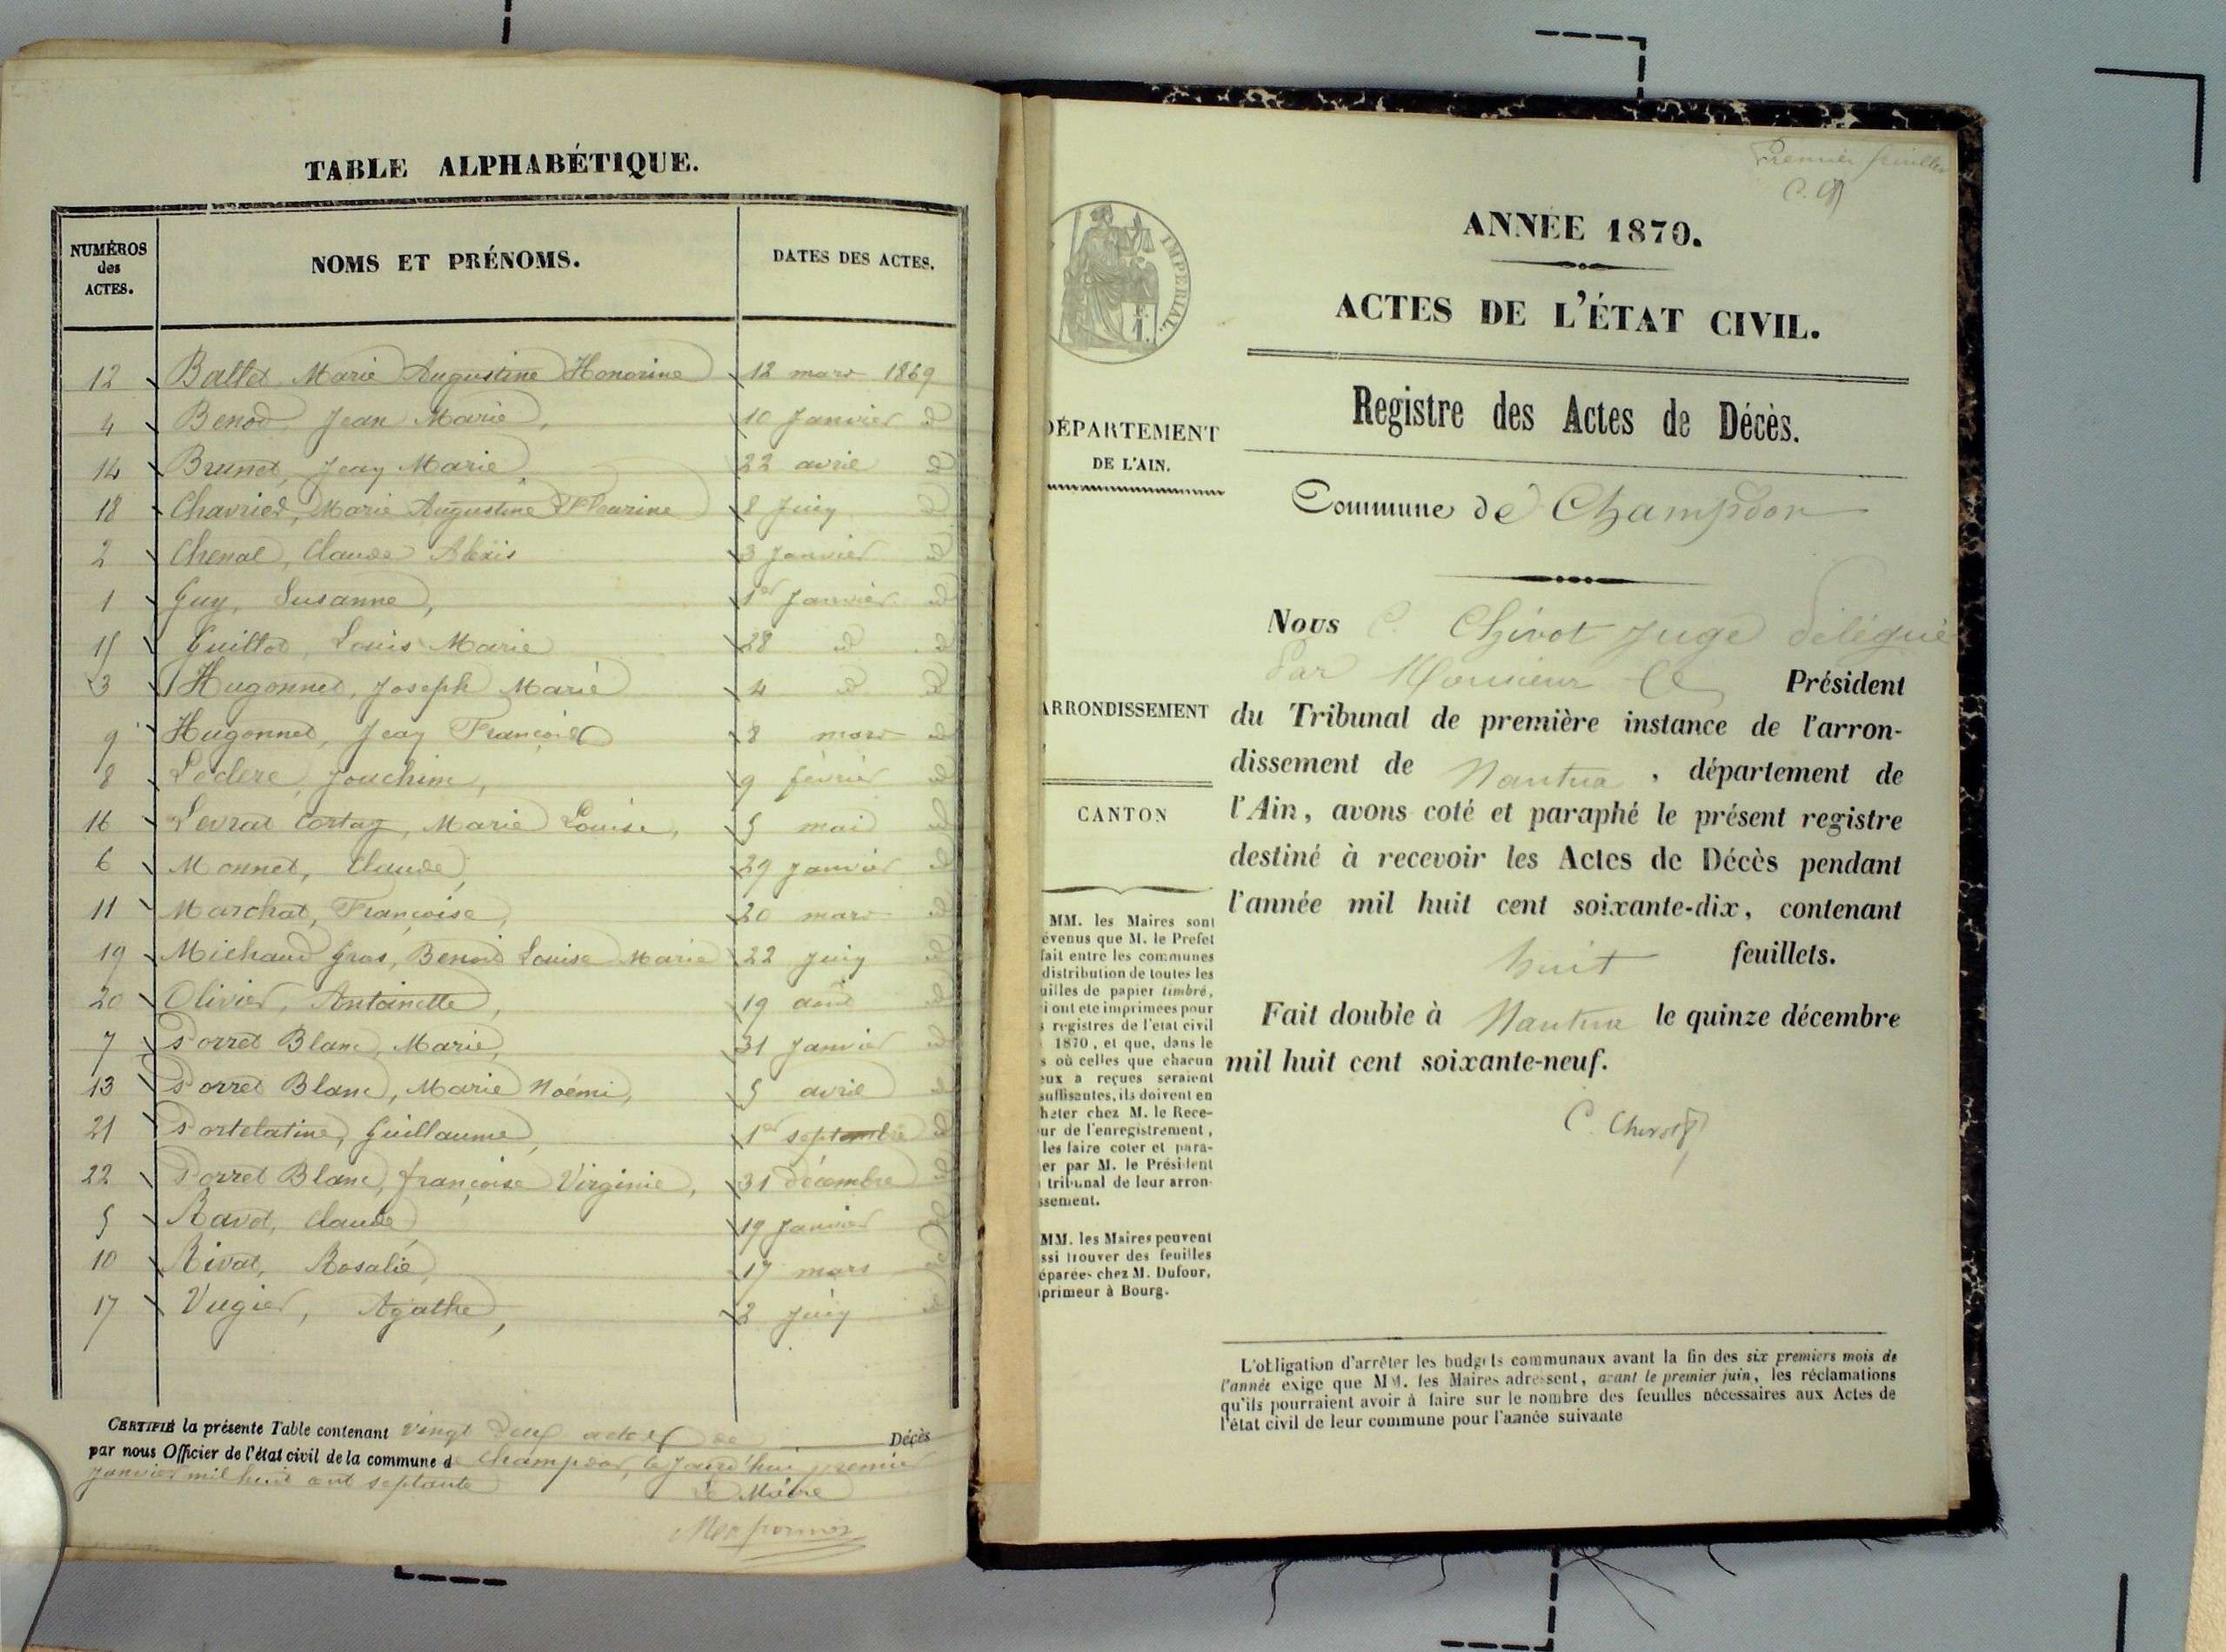 TABLE ALPHABÉTIQUE.
NUMÉROS des ACTES.
NOMS ET PRÉNOMS.
DATES DES ACTES.
12 Ballet Marie Augustine Honorine 12 mars 1869
4 Benod Jean Marie, 10 Janvier d
14 Brunet, Jean Marie, 22 avril d
18 Chavrier, Marie Augustine 8 Juin d
2 Chenal, Claude Alexis 3 Janvier d
1 Guy, Susanne, 1er Janvier d
15 Guillot, Louis Marie 28 d d
3 Hugonnet, Joseph Marie 4 d d
9 Hugonnet, Jean François 8 mars d
8 Leclerc, Jouchim, 9 février d
16 Levrat Cortay, Marie Louise, 5 mai d
6 Monnet, Claude, 29 Janvier d
11 Marchat, Françoise, 20 mars d
19 Michaud Gros, Benoit Louise Marie 22 Juin d
20 Olivier, Antoinette, 19 août d
7 Porret Blanc, Marie, 31 Janvier d
13 Porret Blanc, Marie Noémi, 5 avril d
21 Portelatine, Guillaume, 1er septembre d
22 Porret Blanc, françoise Virginie, 31 décembre d
5 Ravot, Claude, 19 Janvier d
10 Rivat, Rosalie, 17 mars d
17 Vugier, Agathe, 2 Juin d
CERTIFIÉ la présente Table contenant vingt deux actes de Décès
par nous Officier de l'état civil de la commune de Champdor, ce jourd'hui premier
Janvier mil huit cent septante
Le Maire
Premier feuillet
C. C
IMPÉRIAL.
1.
ANNÉE 1870.
ACTES DE L'ÉTAT CIVIL.
Registre des Actes de Décès.
DÉPARTEMENT
DE L'AIN.
Commune de Champdor
Nous C. Chivot Juge délégué
Par Monsieur le Président
du Tribunal de première instance de l'arron-
dissement de Nantua, département de
l'Ain, avons coté et paraphé le présent registre
destiné à recevoir les Actes de Décès pendant
l'année mil huit cent soixante-dix, contenant
huit feuillets.
Fait double à Nantua le quinze décembre
mil huit cent soixante-neuf.
C. Chivot
ARRONDISSEMENT
CANTON
MM. les Maires sont
évenus que M. le Prefet
fait entre les communes
distribution de toutes les
uilles de papier timbré,
i ont ete imprimees pour
s registres de l'etat civil
1870, et que, dans le
s où celles que chacun
eux a reçues seraient
suffisantes, ils doivent en
heter chez M. le Rece-
ur de l'enregistrement,
les faire coter et para-
er par M. le Président
tribunal de leur arron-
ssement.
MM. les Maires peuvent
ssi trouver des feuilles
éparées chez M. Dufour,
primeur à Bourg.
L'obligation d'arrêter les budgets communaux avant la fin des six premiers mois de
l'année exige que MM. les Maires adressent, avant le premier juin, les réclamations
qu'ils pourraient avoir à faire sur le nombre des feuilles nécessaires aux Actes de
l'état civil de leur commune pour l'année suivante